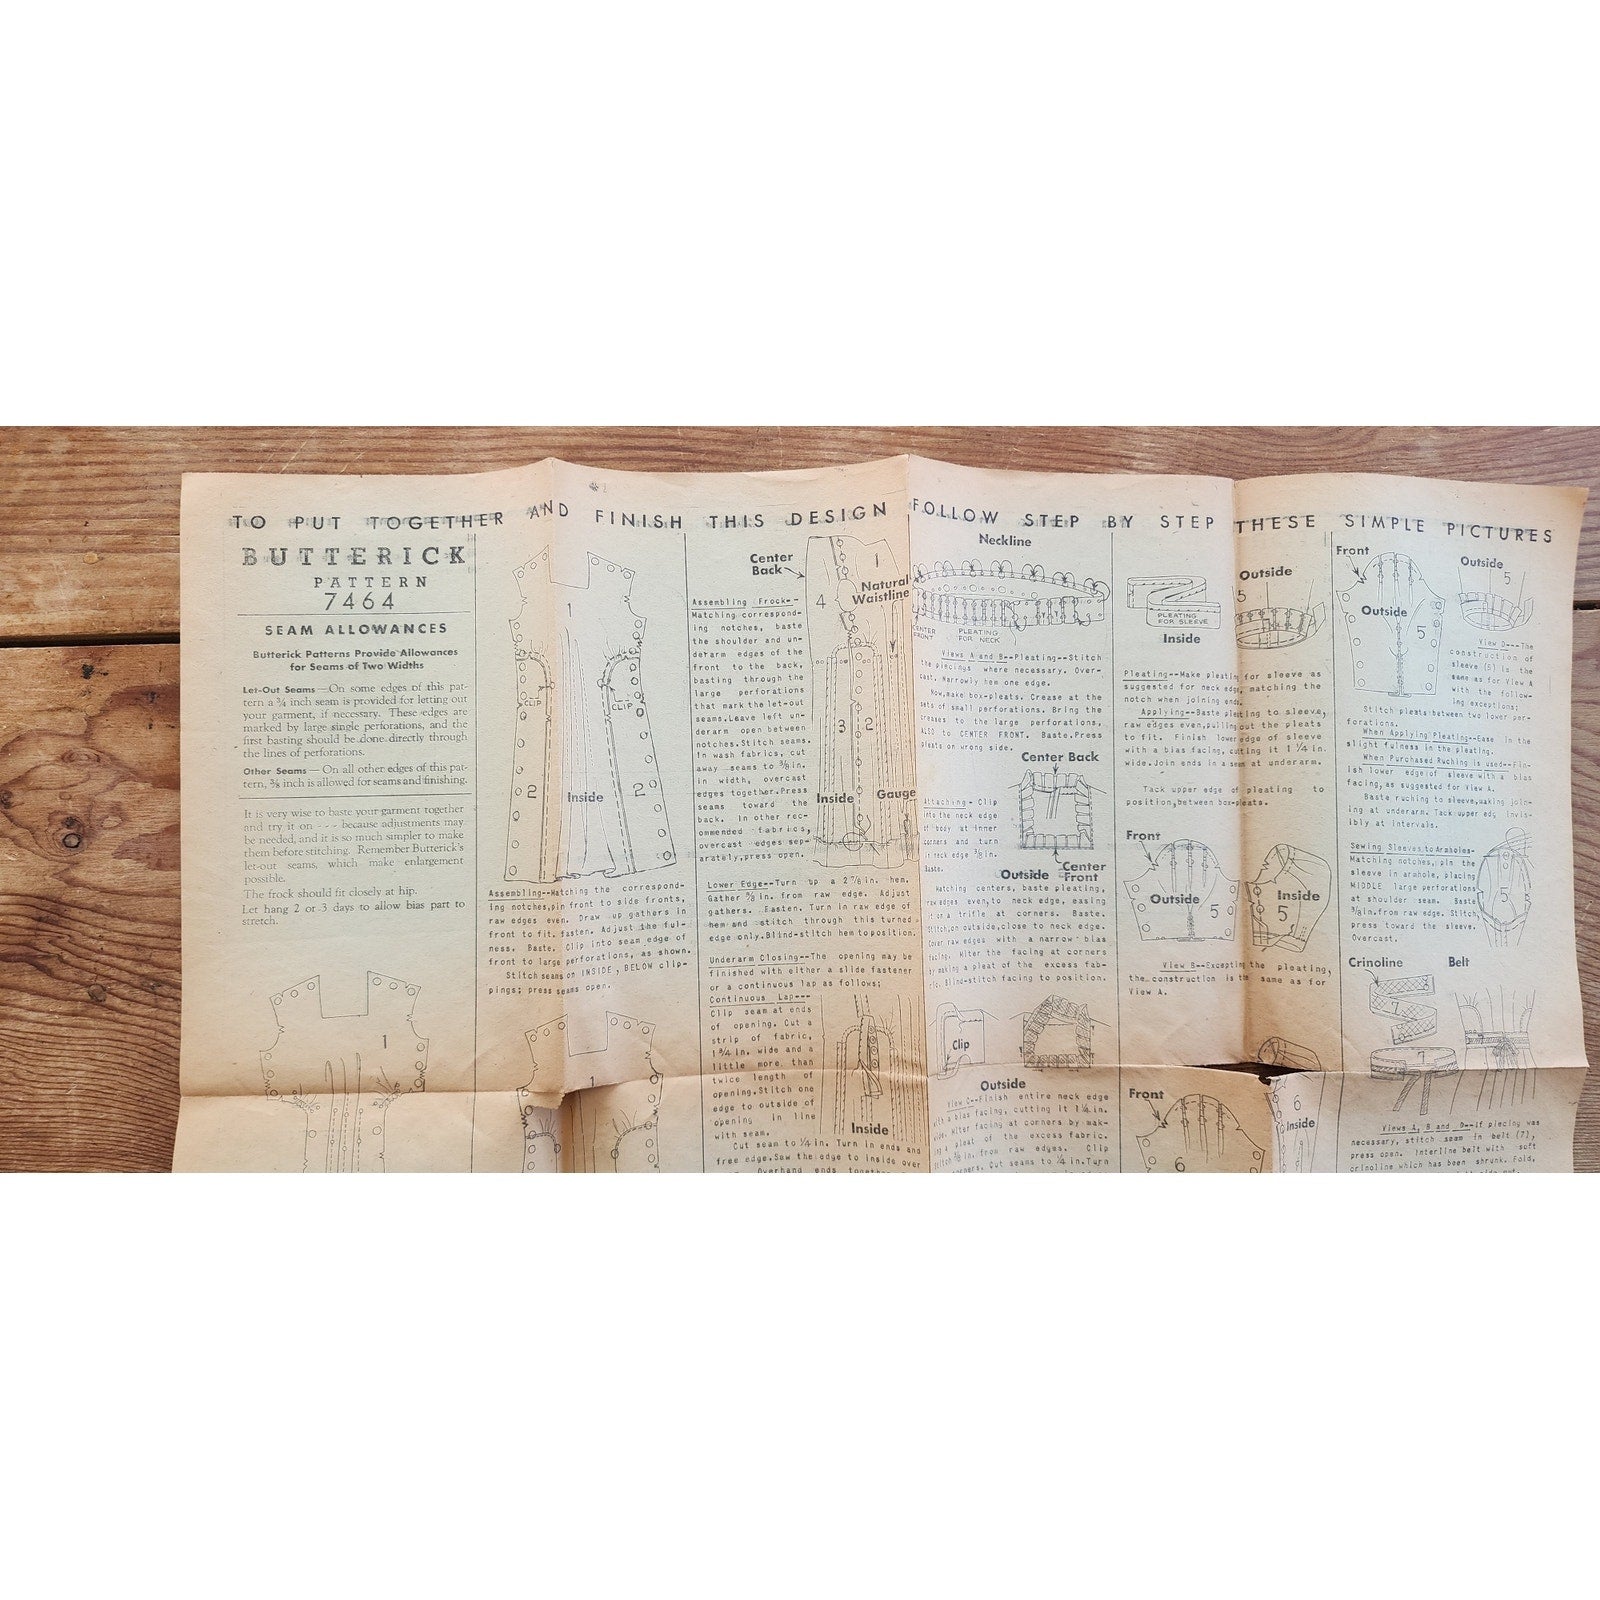 TO PUT TOGETHER AND FINISH THIS DESIGN FOLLOW STEP BY STEP THESE SIMPLE PICTURES
BUTTERICK
PATTERN
7464
SEAM ALLOWANCES
Butterick Patterns Provide Allowances
for Seams of Two Widths
Let-Out Seams — On some edges of this pat-
tern a ¾ inch seam is provided for letting out
your garment, if necessary. These edges are
marked by large single perforations, and the
first basting should be done directly through
the lines of perforations.
Other Seams — On all other edges of this pat-
tern, ⅜ inch is allowed for seams and finishing.
It is very wise to baste your garment together
and try it on - - - because adjustments may
be needed, and it is so much simpler to make
them before stitching. Remember Butterick's
let-out seams, which make enlargement
possible.
The frock should fit closely at hip.
Let hang 2 or 3 days to allow bias part to
stretch.
1
1
CLIP
CLIP
2
Inside
2
Assembling--Matching the correspond-
ing notches, pin front to side fronts,
raw edges even. Draw up gathers in
front to fit. Fasten. Adjust the ful-
ness. Baste. Clip into seam edge of
front to large perforations, as shown.
Stitch seams on INSIDE, BELOW clip-
pings; press seams open.
1
Center
Back
1
4
Natural
Waistline
3
2
Inside
Gauge
Assembling Frock--
Matching correspond-
ing notches, baste
the shoulder and un-
derarm edges of the
front to the back,
basting through the
large perforations
that mark the let-out
seams. Leave left un-
derarm open between
notches. Stitch seams.
In wash fabrics, cut
away seams to ⅜ in.
in width, overcast
edges together. Press
seams toward the
back. In other rec-
ommended fabrics,
overcast edges sep-
arately, press open.
Lower Edge--Turn up a 2⅞ in. hem.
Gather ⅜ in. from raw edge. Adjust
gathers. Fasten. Turn in raw edge of
hem and stitch through this turned
edge only. Blind-stitch hem to position.
Underarm Closing--The opening may be
finished with either a slide fastener
or a continuous lap as follows;
Continuous Lap---
Clip seam at ends
of opening. Cut a
strip of fabric,
1¾ in. wide and a
little more than
twice length of
opening. Stitch one
edge to outside of
opening in line
with seam.
Inside
Cut seam to ¼ in. Turn in ends and
free edge. Sew the edge to inside over
Overhand ends together
Neckline
CENTER
FRONT
PLEATING
FOR NECK
Views A and B--Pleating--Stitch
the piecings where necessary. Over-
cast. Narrowly hem one edge.
Now, make box-pleats. Crease at the
sets of small perforations. Bring the
creases to the large perforations,
ALSO to CENTER FRONT. Baste. Press
pleats on wrong side.
Center Back
Attaching - Clip
into the neck edge
of body at inner
corners and turn
in neck edge ⅜ in.
Baste.
Outside
Center
Front
Matching centers, baste pleating,
raw edges even, to neck edge, easing
on a trifle at corners. Baste.
Stitch, on outside, close to neck edge.
Cover raw edges with a narrow bias
facing. Miter the facing at corners
by making a pleat of the excess fab-
ric. Blind-stitch facing to position.
Clip
Outside
View C--Finish entire neck edge
with a bias facing, cutting it 1¼ in.
wide. Miter facing at corners by mak-
a pleat of the excess fabric.
Stitch ⅜ in. from raw edges. Clip
corners. Cut seams to ¼ in. Turn
PLEATING
FOR SLEEVE
Inside
Outside
5
Pleating--Make pleating for sleeve as
suggested for neck edge, matching the
notch when joining ends.
Applying--Baste pleating to sleeve,
raw edges even, pulling out the pleats
to fit. Finish lower edge of sleeve
with a bias facing, cutting it 1¼ in.
wide. Join ends in a seam at underarm.
Tack upper edge of pleating to
position, between box-pleats.
Front
Outside
5
Inside
5
View B--Excepting the pleating,
the construction is the same as for
View A.
Front
6
6
Inside
Front
Outside
5
Outside
5
View D--The
construction of
sleeve (5) is the
same as for View A
with the follow-
ing exceptions;
Stitch pleats between two lower per-
forations.
When Applying Pleating--Ease in the
slight fulness in the pleating.
When Purchased Ruching is used--Fin-
ish lower edge of sleeve with a bias
facing, as suggested for View A.
Baste ruching to sleeve, making join-
ing at underarm. Tack upper edg invis-
ibly at intervals.
Sewing Sleeves to Armholes-
Matching notches, pin the
sleeve in armhole, placing
MIDDLE large perforations
at shoulder seam. Baste
⅜ in. from raw edge. Stitch,
press toward the sleeve.
Overcast.
5
Crinoline
Belt
7
Views A, B and D--If piecing was
necessary, stitch seam in belt (7),
press open. Interline belt with soft
crinoline which has been shrunk. Fold,